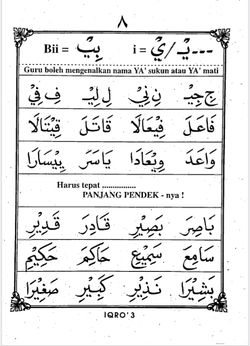 ٨
Bii = بِيْ i = ...يـ/يْ
Guru boleh mengenalkan nama YA' sukun atau YA' mati
جِ جِيْـ نِ نِيْ لِ لِيْـ فِ فِيْ
فَاعَلَ فِيْعَالَا قَاتَلَ قِيْتَالَا
وَاعَدَ وِيْعَادَا يَاسَرَ يِيْسَارَا
Harus tepat .................
PANJANG PENDEK - nya !
بَاصِرَ بَصِيْرَ قَادِرَ قَدِيْرَ
سَامِعَ سَمِيْعَ حَاكِمَ حَكِيْمَ
بَشِيْرَا نَذِيْرَ كَبِيْرَ صَغِيْرَا
IQRO' 3